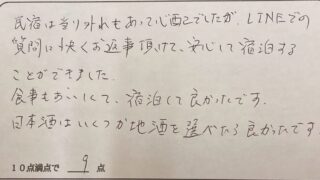 民宿は当り外れもあって心配でしたが、LINEでの
質問に快くお返事頂けて、安心して宿泊する
ことができました。
食事もおいしくて、宿泊して良かったです。
日本酒はいくつか地酒を選べたら良かったです
10点満点で 9 点